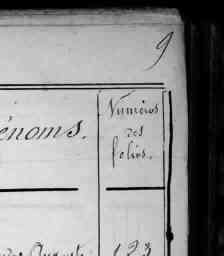 9
énoms.
Numéros
des
folios.
Auguste
123